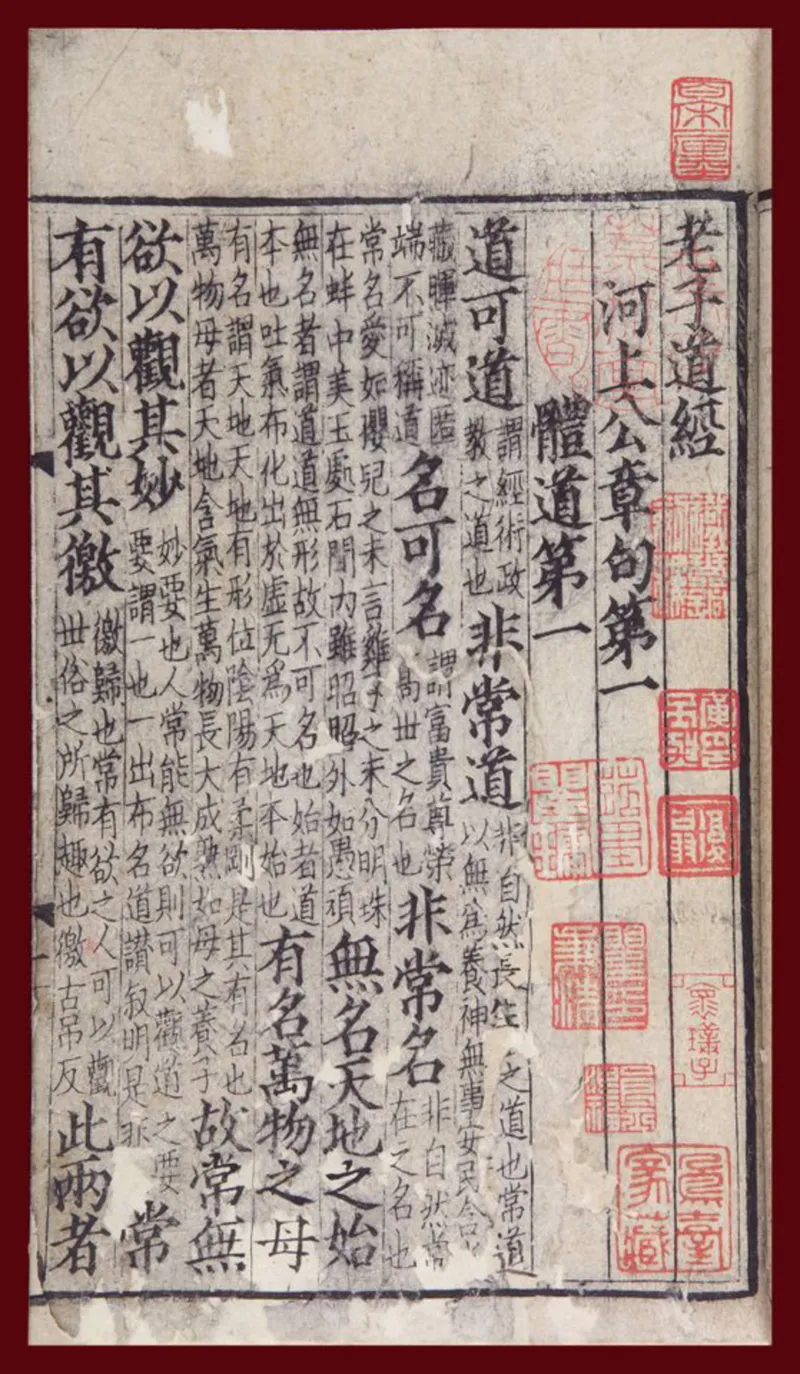 老子道經
河上公章句第一
體道第一
道可道謂經術政教之道也非常道非自然長生之道也常道以無爲養神無事安民含
藏暉滅迹匿端不可稱道名可名謂富貴尊榮高丗之名也非常名非自然常在之名也
常名愛如櫻兒之未言雞子之未分明珠在蚌中美玉處石間內雖昭昭外如愚頑無名天地之始
無名者謂道道無形故不可名也始者道本也吐氣布化出於虛无爲天地本始也有名萬物之母
有名謂天地天地有形位陰陽有柔剛是其有名也萬物母者天地含氣生萬物長大成熟如母之養子故常無
欲以觀其妙妙要也人常能無欲則可以觀道之要要謂一也一出布名道讃叙明是非常
有欲以觀其徼徼歸也常有欲之人可以觀丗俗之所歸趣也徼古吊反此兩者